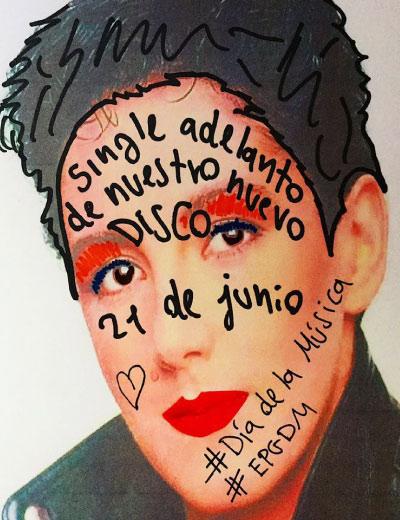 single adelanto
de nuestro nuevo
DISCO
21 de junio
#Día de la Música
#EPGDM